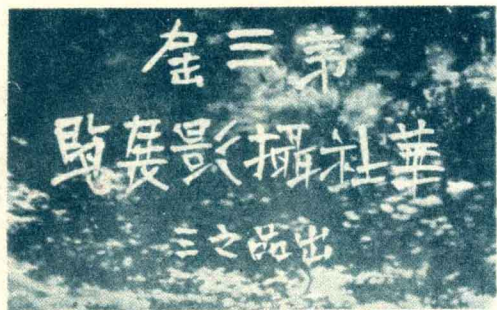 弟三屆
華社攝影展覽
出品之三